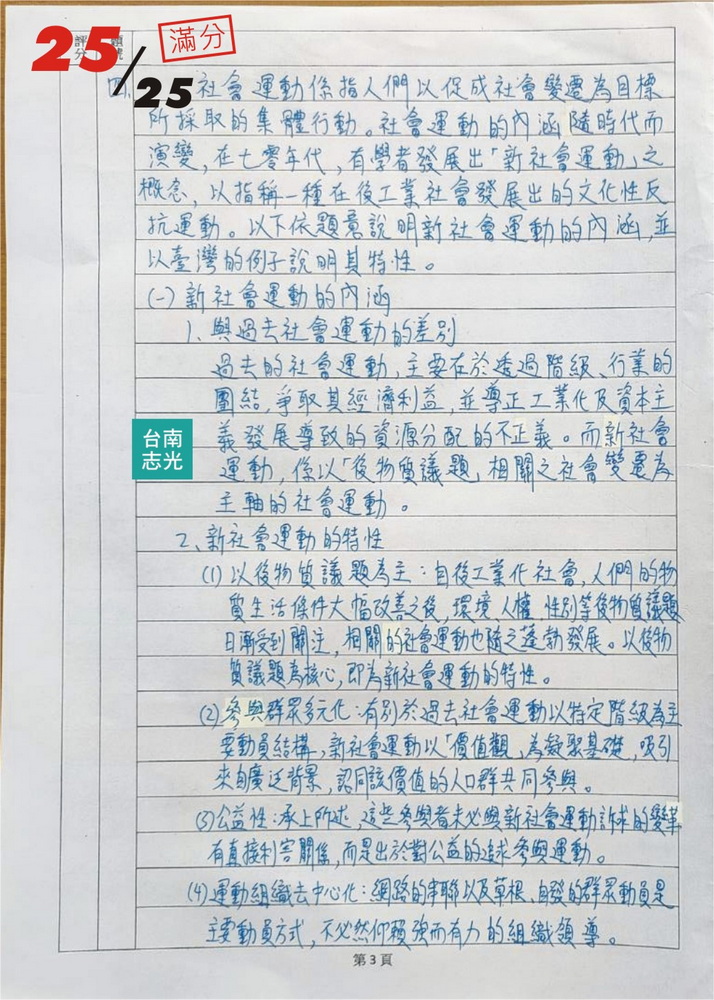 25/25
滿分
評分
題號
四、
社會運動係指人們以促成社會變遷為目標
所採取的集體行動。社會運動的內涵隨時代而
演變，在七零年代，有學者發展出「新社會運動」之
概念，以指稱一種在後工業社會發展出的文化性反
抗運動。以下依題意說明新社會運動的內涵，並
以臺灣的例子說明其特性。
(一)新社會運動的內涵
1、與過去社會運動的差別
過去的社會運動，主要在於透過階級、行業的
團結，爭取其經濟利益，並導正工業化及資本主
義發展導致的資源分配的不正義。而新社會
運動，係以「後物質議題」相關之社會變遷為
主軸的社會運動。
台南
志光
2、新社會運動的特性
(1)以後物質議題為主：自後工業化社會，人們的物
質生活條件大幅改善之後，環境、人權、性別等後物質議題
日漸受到關注，相關的社會運動也隨之蓬勃發展。以後物
質議題為核心，即為新社會運動的特性。
(2)參與群眾多元化：有別於過去社會運動以特定階級為主
要動員結構，新社會運動以「價值觀」為凝聚基礎，吸引
來自廣泛背景，認同該價值的人口群共同參與。
(3)公益性：承上所述，這些參與者未必與新社會運動訴求的變革
有直接利害關係，而是出於對公益的追求參與運動。
(4)運動組織去中心化：網路的串聯以及草根、自發的群眾動員是
主要動員方式，不必然仰賴強而有力的組織領導。
第3頁